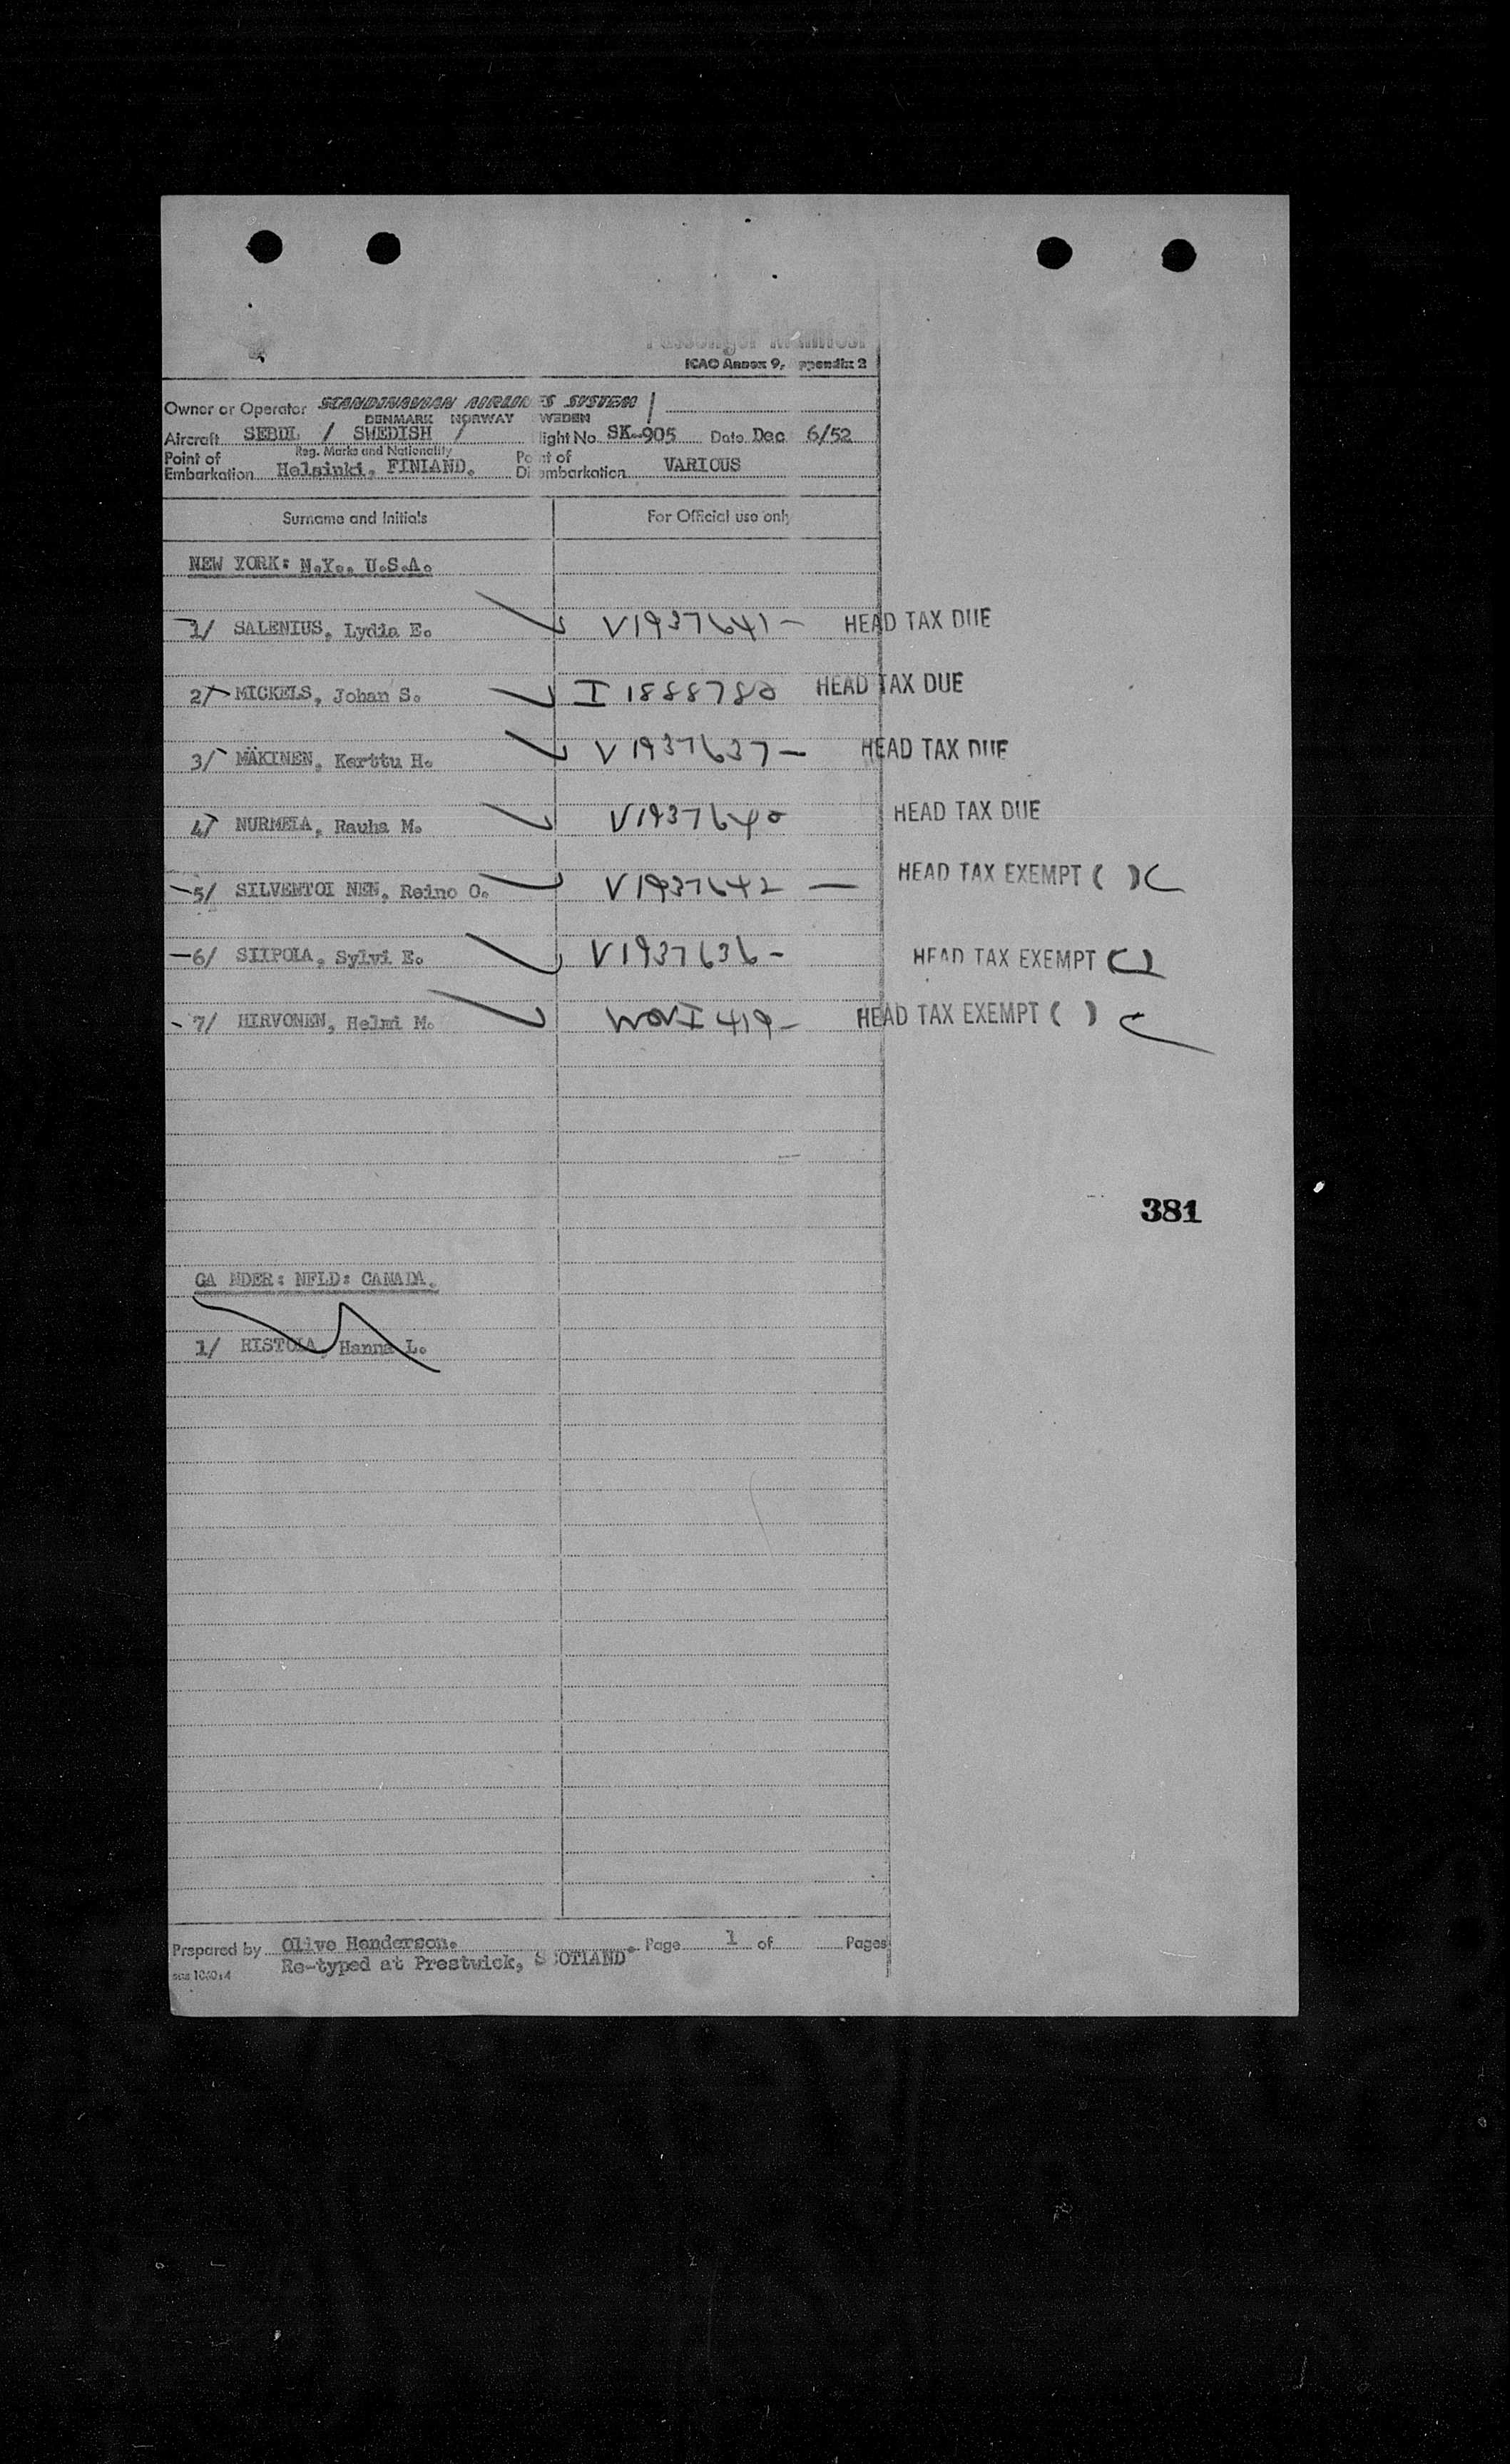 Passenger Manifest
ICAO Annex 9, ppendix 2
Owner or Operator SCANDINAVIAN AIRLINES SYSTEM /
DENMARK NORWAY WEDEN
Aircraft SEBDL / SWEDISH / light No. SK-905 Date Dec 6/52
Reg. Marks and Nationality
Point of Embarkation Helsinki, FINLAND. Po nt of Di embarkation VARIOUS
Surname and Initials For Official use only
NEW YORK: N.Y., U.S.A.
1/ SALENIUS, Lydia E. V1937641 - HEAD TAX DUE
2/ MICKELS, Johan S. I 1888780 HEAD TAX DUE
3/ MÄKINEN, Kerttu H. V 1937637 - HEAD TAX DUE
4/ NURMELA, Rauha M. V1937640 HEAD TAX DUE
5/ SILVENTOI NEN, Reino O. V1937642 - HEAD TAX EXEMPT ( )
6/ SIIPOLA, Sylvi E. V1937636 - HEAD TAX EXEMPT ( )
7/ HIRVONEN, Helmi M. 419 - HEAD TAX EXEMPT ( )
381
GA NDER: NFLD: CANADA.
1/ RISTOLA, Hanna L.
Prepared by Olive Henderson. Page 1 of Pages
Re-typed at Prestwick, SCOTLAND